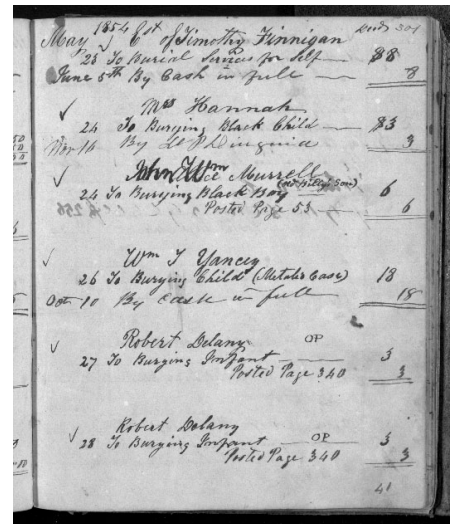 May 1854 Est of Timothy Finnigan
23 To Burial Services for Self $8
June 5th By Cash in full 8
✓ Mrs Hannah
24 To Burying Black Child $3
Nov 16 By Duiguid 3
✓ John Wm Murrell
24 To Burying Black Boy (old Billy's Son) 6
Posted Page 53 6
✓ Wm T Yancey
26 To Burying Child (Metalic Case) 18
Oct 10 By Cash in full 18
✓ Robert Delany
27 To Burying Infant OP 3
Posted Page 340 3
✓ Robert Delany
28 To Burying Infant OP 3
Posted Page 340 3
41